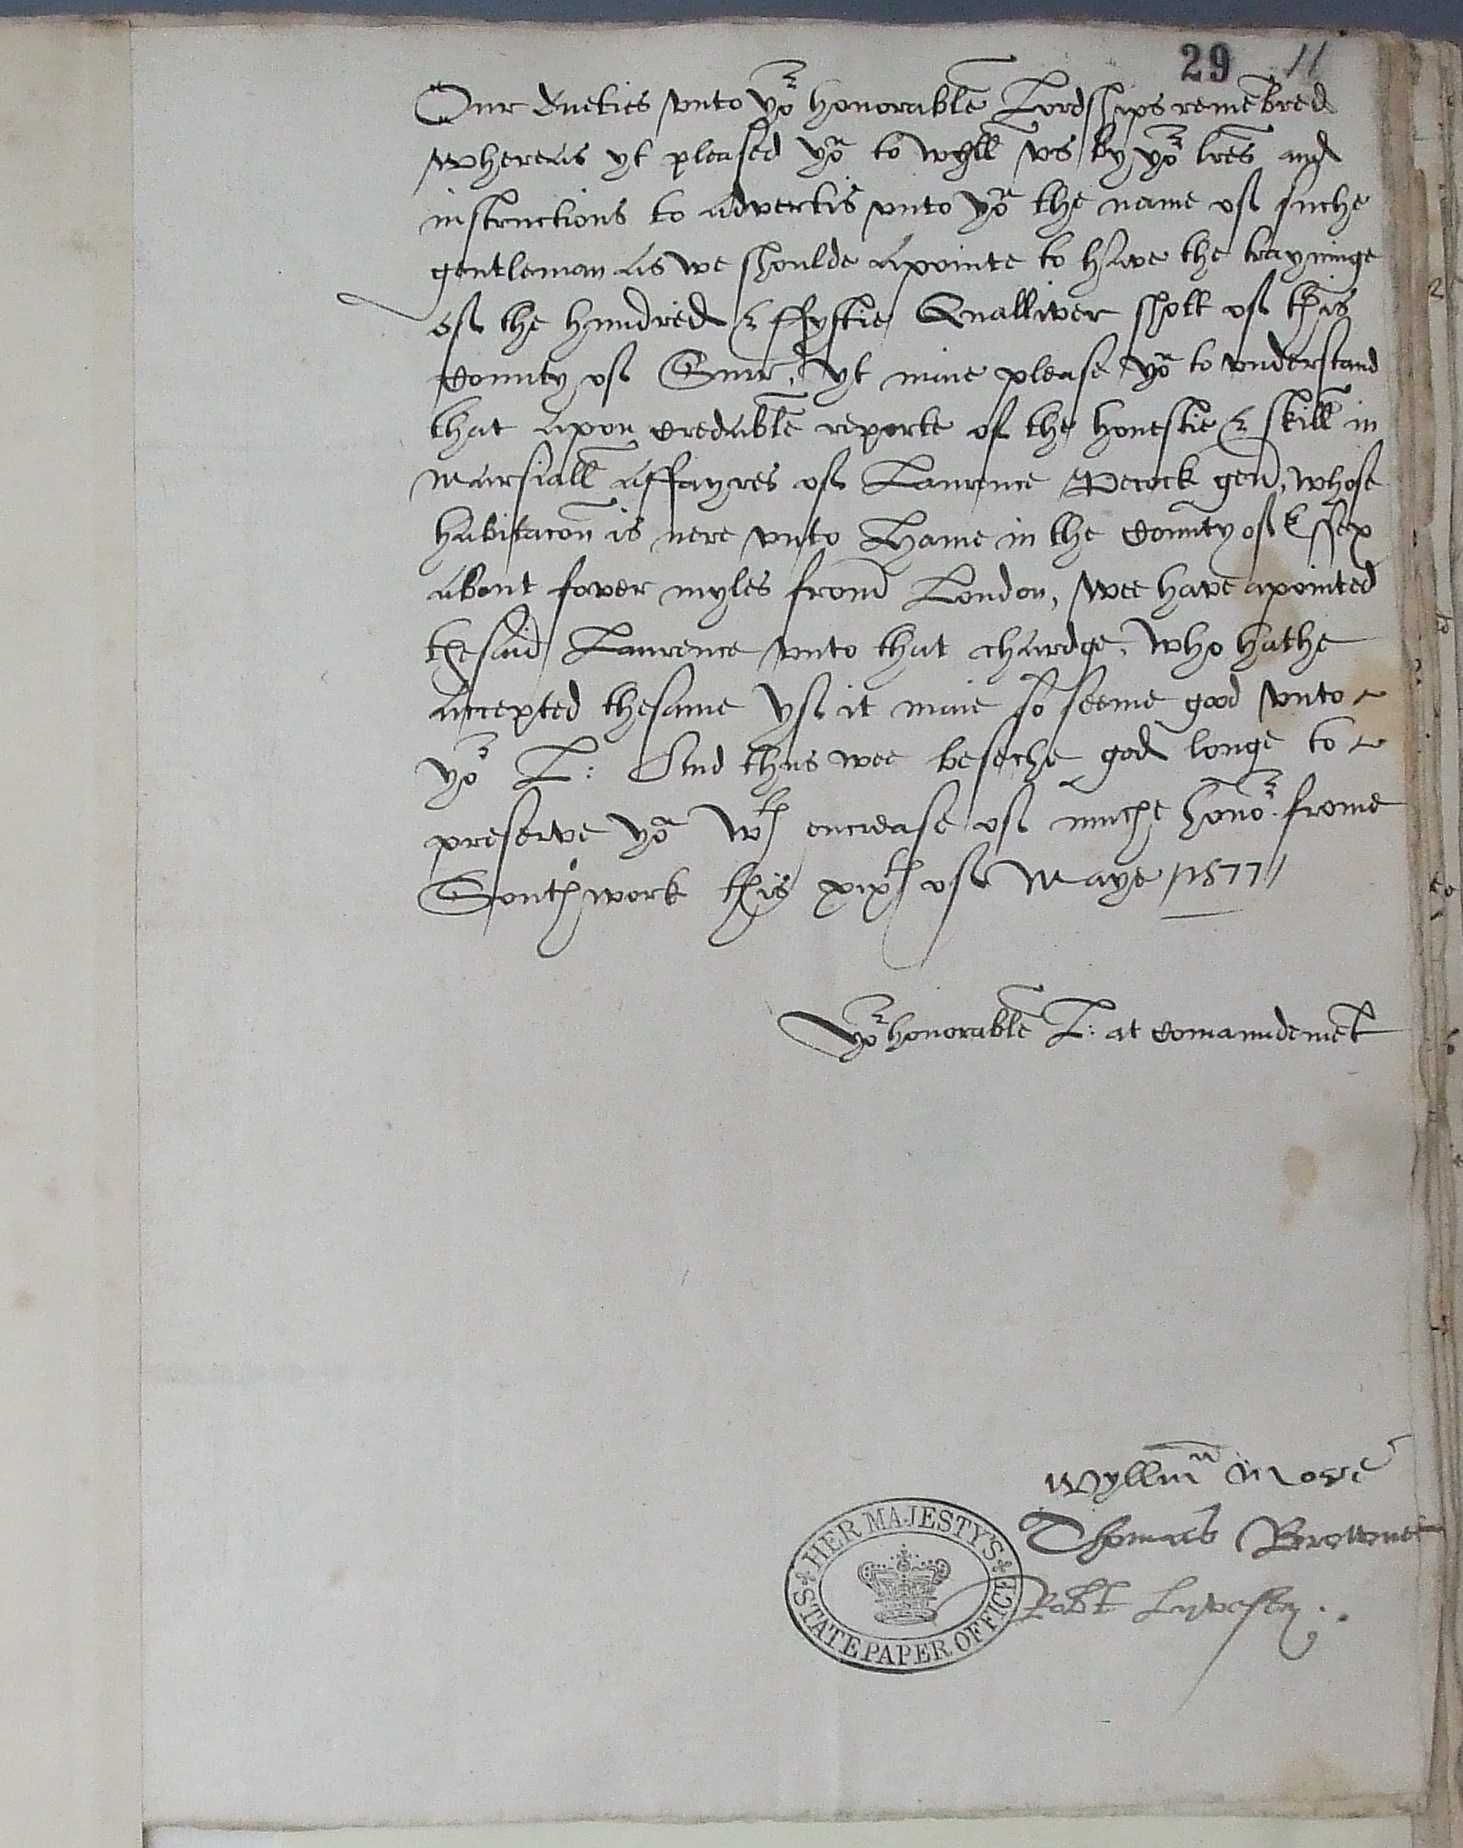 29 11
Our dueties vnto yor honorable Lordships remembred
whereas yt pleased yow to wyll vs by yor lres and
instructions to advertis vnto yow the name of suche
gentleman as we shoulde apointe to have the trayninge
of the hundred & ffyftie Qualliver shott of this
County of Surr, yt maie please yow to vnderstand
that apon credable reporte of the honestie & skill in
marsiall affayres of Laurence Pecock gen, whose
habitacon is nere vnto Hame in the County of Essex
about fower myles from London, wee have apointed
thesaid Laurence vnto that chardge, who hathe
accepted thesame yf it maie so seeme good vnto
yor L: And thus wee beseche god longe to
preserve yow wth encrease of muche honor. frome
Southwork this xixth of Maye 1577
Yor honorable L: at comaundemet
Wyllm More
Thomas Browne
Robt Lyvesey
HER MAJESTY'S
STATE PAPER OFFICE